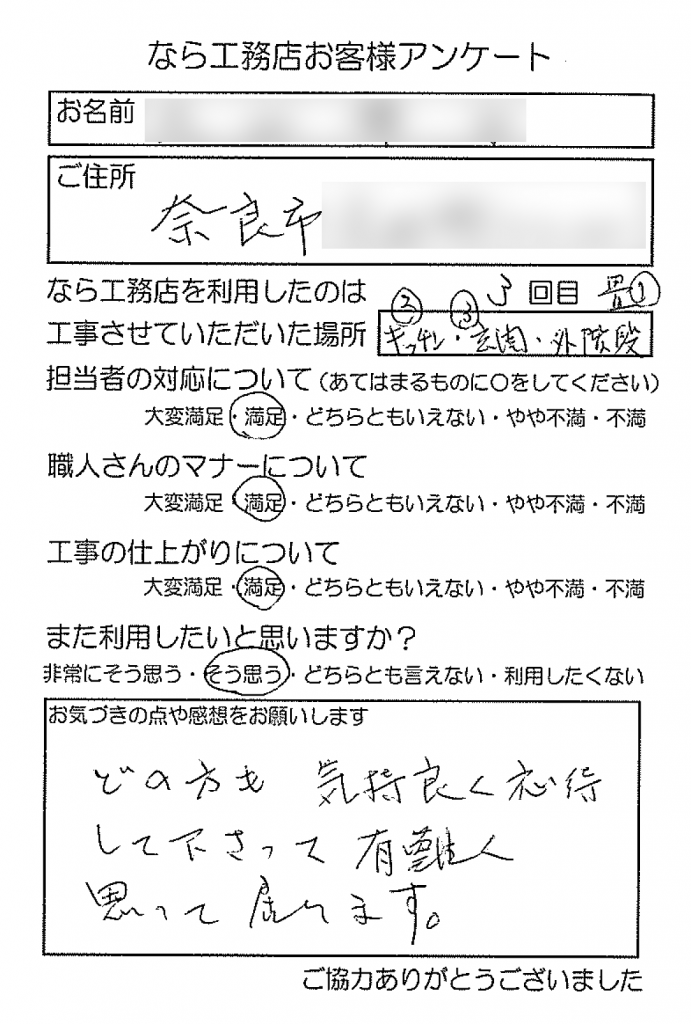 なら工務店お客様アンケート
お名前
ご住所
奈良市
なら工務店を利用したのは 3 回目 畳①
② ③
工事させていただいた場所 キッチン・玄関・外階段
担当者の対応について(あてはまるものに〇をしてください)
大変満足・満足・どちらともいえない・やや不満・不満
職人さんのマナーについて
大変満足・満足・どちらともいえない・やや不満・不満
工事の仕上がりについて
大変満足・満足・どちらともいえない・やや不満・不満
また利用したいと思いますか?
非常にそう思う・そう思う・どちらとも言えない・利用したくない
お気づきの点や感想をお願いします
どの方も 気持良く応待
して下さって 有難く
思って居ります。
ご協力ありがとうございました